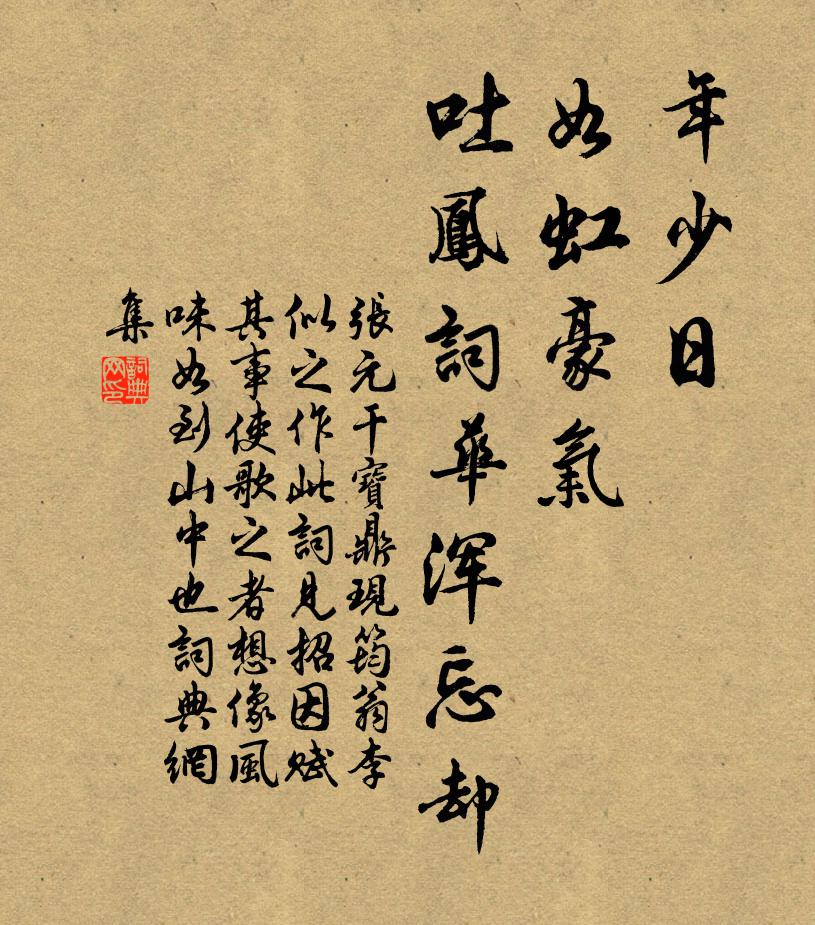 年少日
如虹豪氣
吐鳳詞華渾忘却
張元干寶鼎現筠翁李
似之作此詞見招因賦
其事使歌之者想像風
味如到山中也詞典網
集
詞典網印